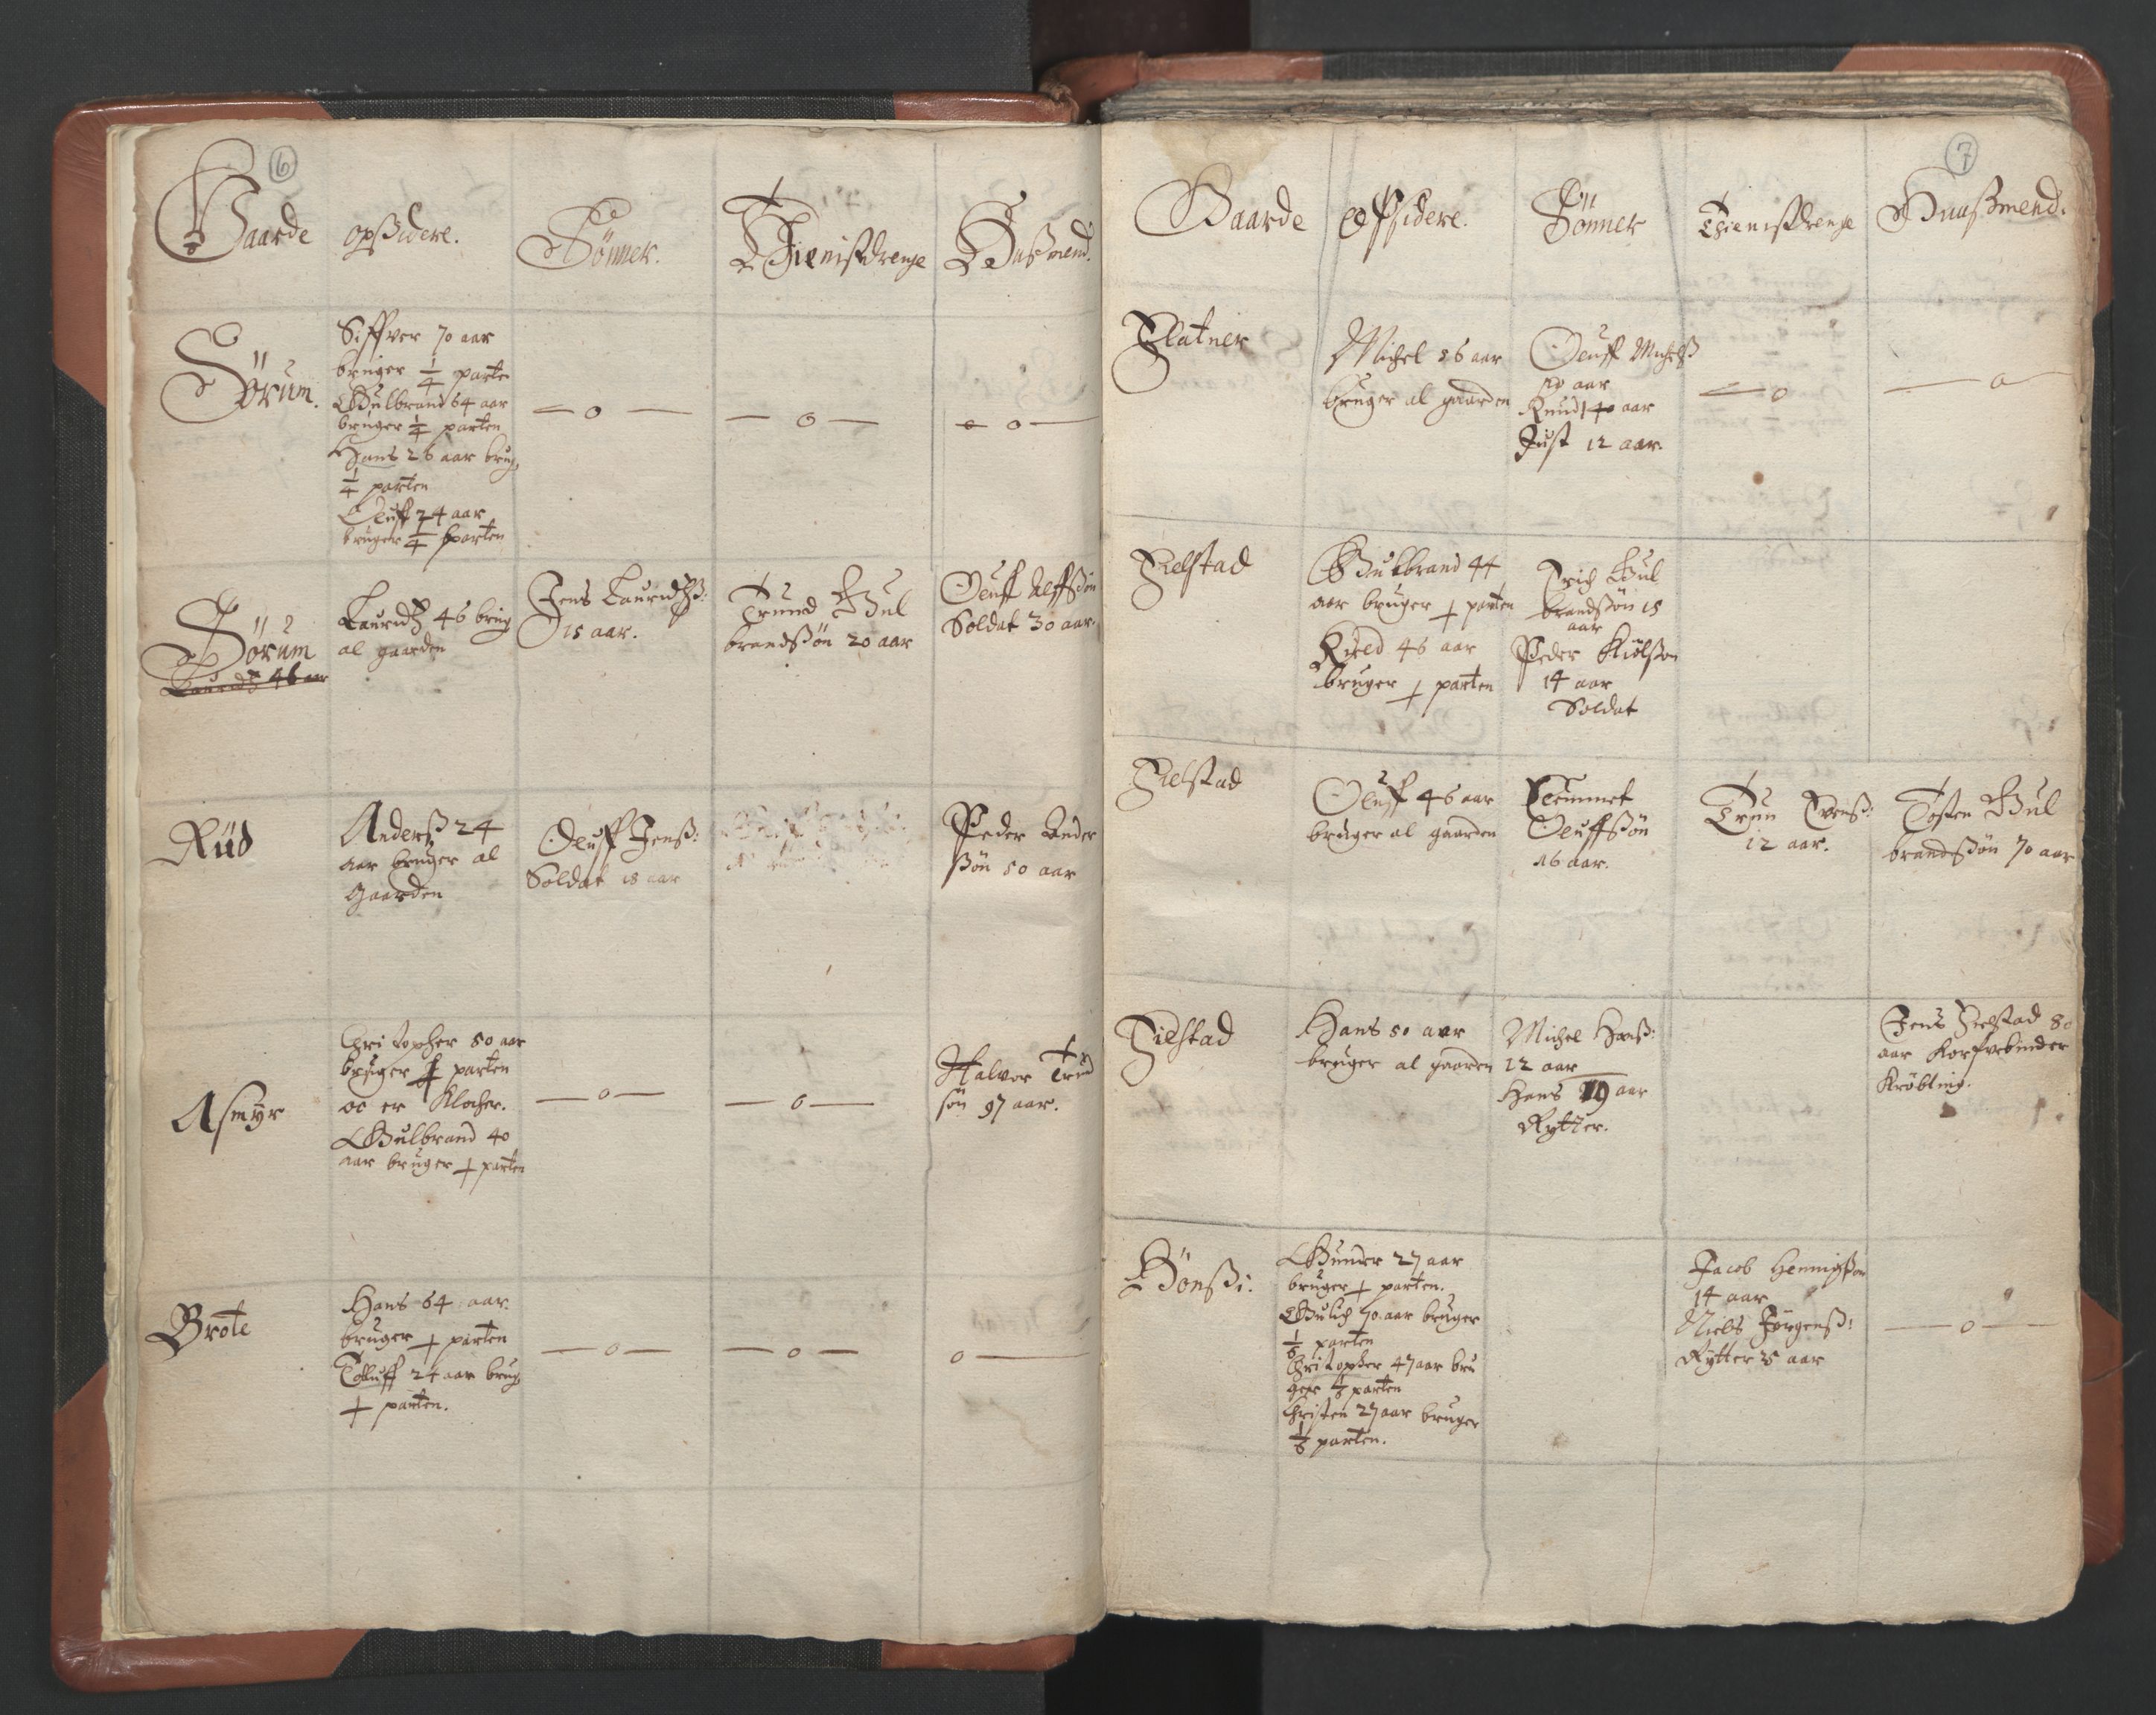 6
Gaarde opßidere. Sönner. Thienistdrenge Husmend.
Sörum.
Siffver 70 aar
bruger 1/4 parten
Gulbrand 64 aar
bruger 1/4 parten
Hans 26 aar brug.
1/4 parten
Oluff 24 aar
bruger 1/4 parten
— o —
— o —
— o —
Sörum
Lauridtz 46 aar
Lauridtz 46 brug.
al gaarden
Jens Lauridtzß:
15 aar.
Trund Gul
brandßön 20 aar
Oluff Alffßön
Soldat 30 aar.
Rüd
Anderß 24
aar bruger al
Gaarden
Oluff Jenß:
Soldat 18 aar
Peder Ander
ßön 50 aar
Asmyr
Christopher 50 aar
bruger parten
oc er Klocher.
Gulbrand 40
aar bruger ½ parten
— o —
— o —
Halvor Trund
sön 97 aar.
Brote
Hans 64 aar.
bruger ½ parten
Tolluff 24 aar brug.
½ parten.
— o —
— o —
o —
7
Gaarde Opsidere. Sönner Thienistdrenge Huußmend.
Flatner
Michel 56 aar
bruger al gaarden
Oluff Michelß
20 aar
Knud 14 aar
Just 12 aar.
— o
— o
Zielstad
Gulbrand 44
aar bruger ½ parten
Kield 46 aar
bruger ½ parten
Erich Gul
brandßön 15
aar
Peder Kielßön
14 aar
Soldat
Zielstad
Oluff 46 aar
bruger al gaarden
Oluffßön
16 aar.
12 aar.
Tosten Gul
brandßön 70 aar
Zielstad
Hans 50 aar
bruger al gaarden
Michel Hanß:
12 aar
Hans 19 aar
Rytter.
Jens Zielstad 80
aar
Krøbling.
Hönßi:
Gunder 27 aar
bruger ½ parten.
Gulich 70 aar bruger
1/6 parten
Christopher 47 aar bru
ger parten
Christen 27 aar bruger
parten.
Jacob Hennigßön
14 aar
Niels Jörgenß:
Rytter 25 aar
— o —